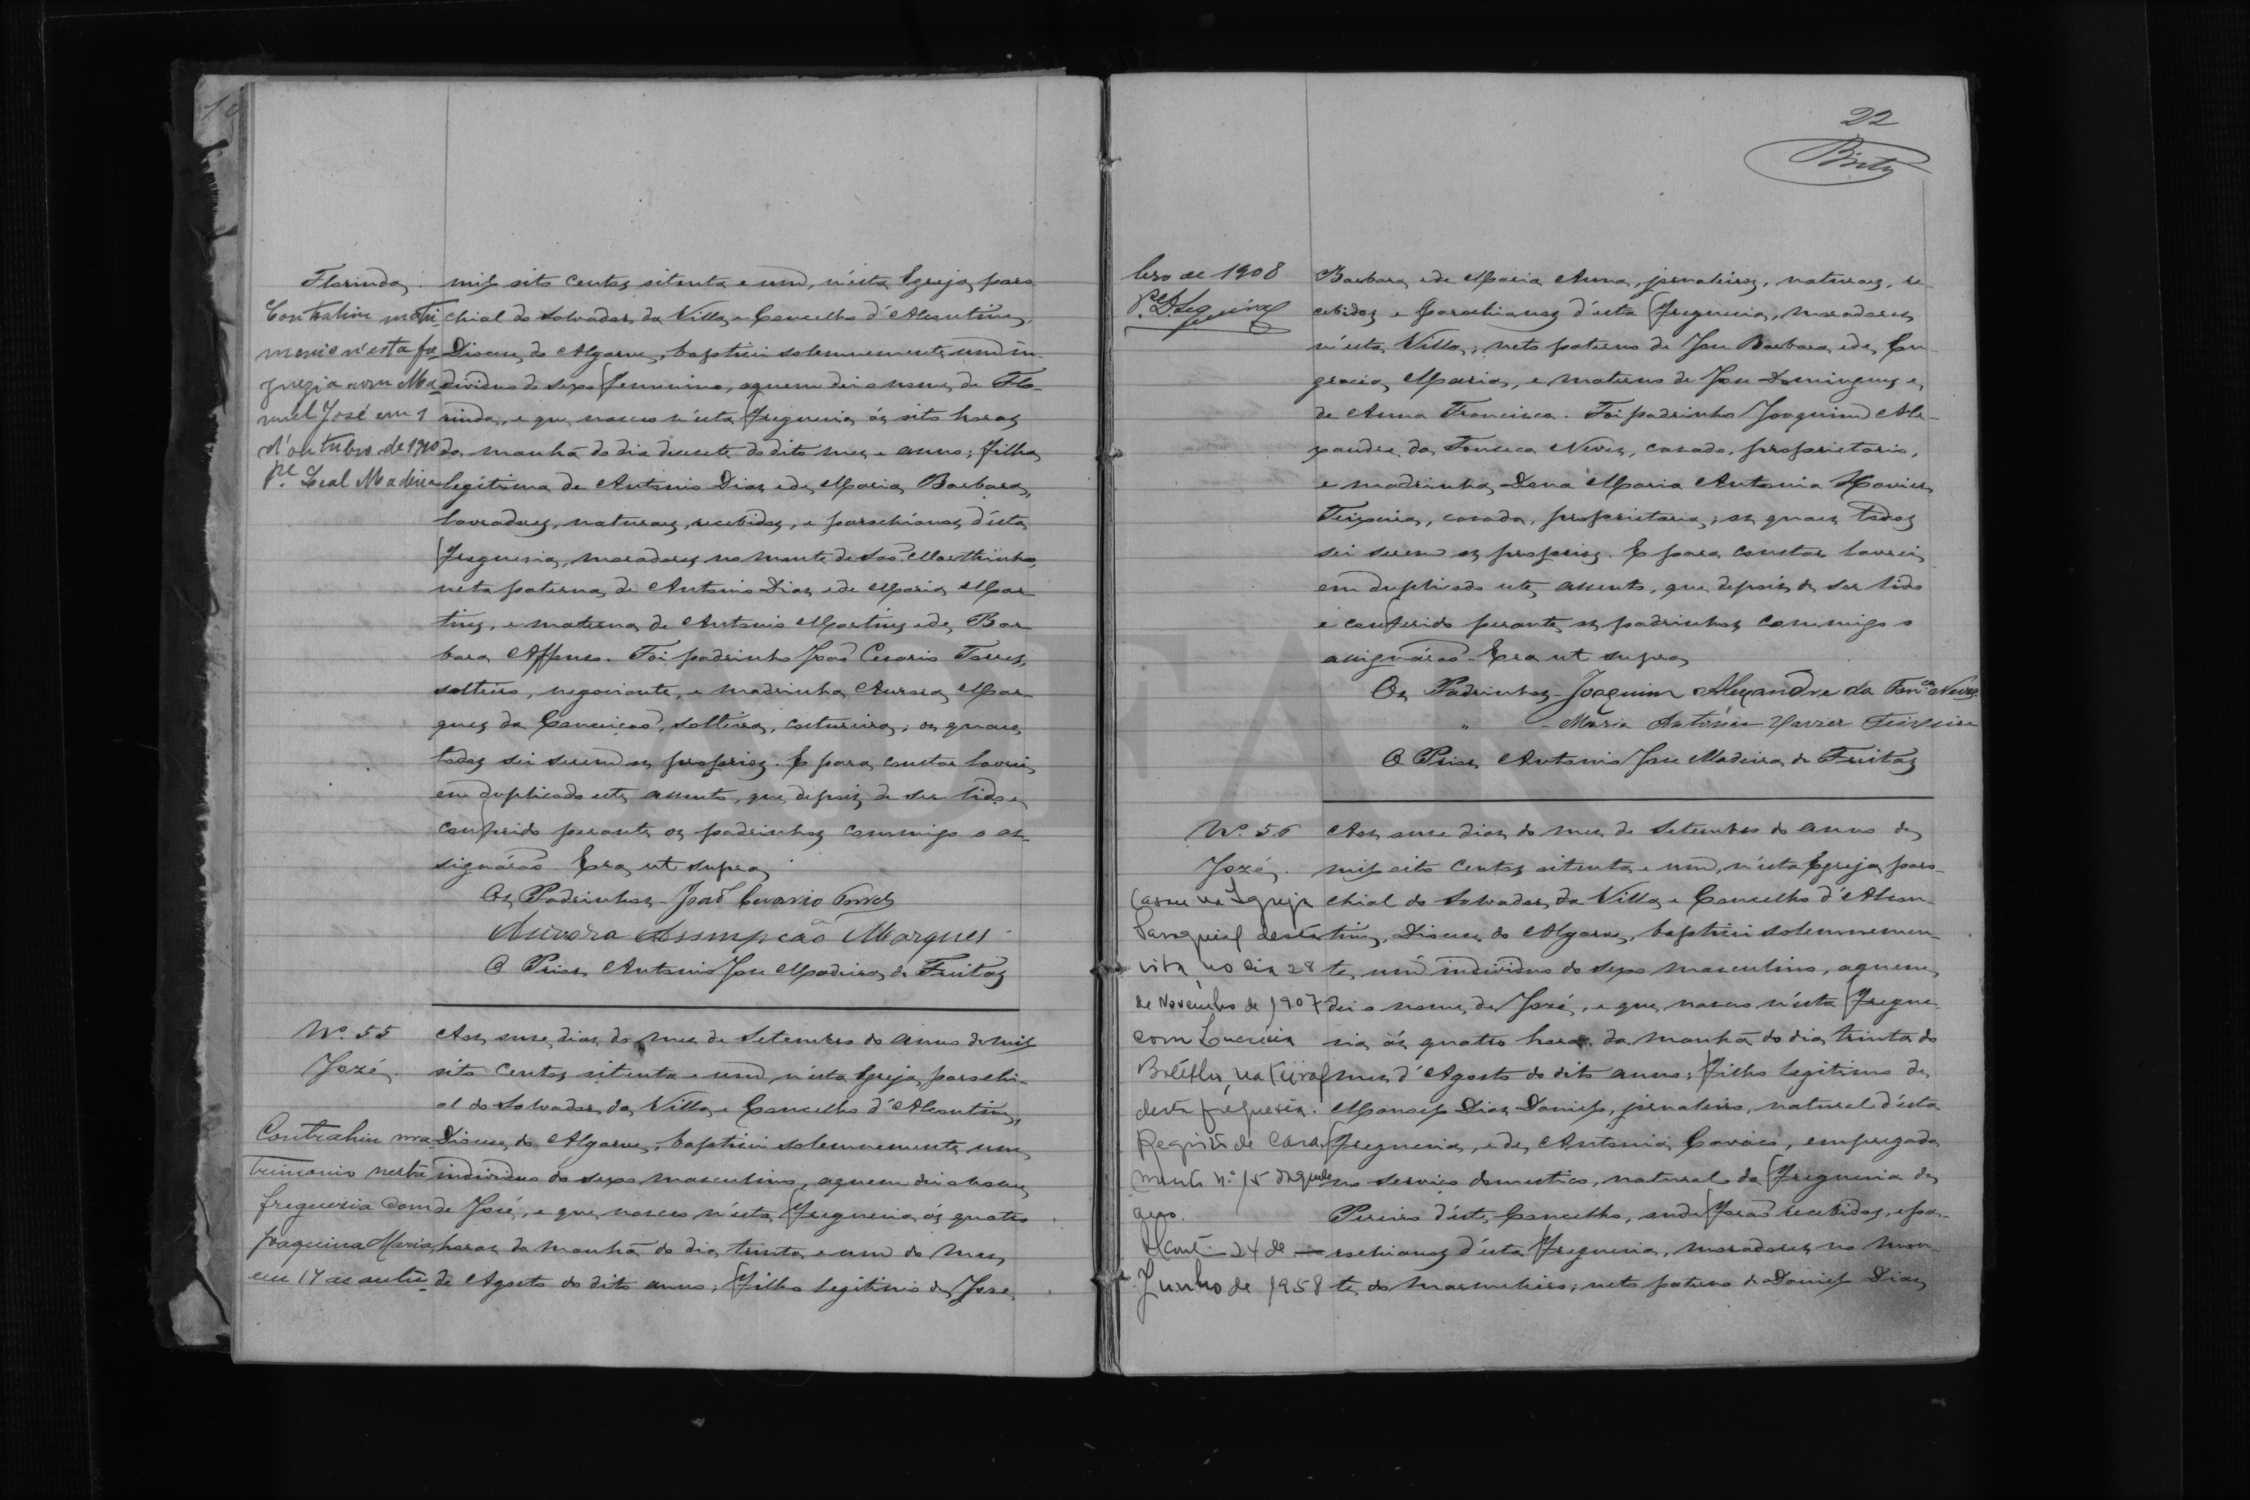 Florinda.
Contrahiu matri
monio n'esta fre
guezia com Ma
nuel José em 1
d'outubro de 1900
Pe. Leal Madeira
mil oito centos setenta e um, n'esta Egreja paro
chial do Salvador da Villa e Concelho d'Alcoutim,
Diocese do Algarve, baptisei solemnemente um in
dividuo do sexo feminino, a quem dei o nome de Flo-
rinda, e que nasceu n'esta freguezia ás oito horas
da manhã do dia dezesete do dito mez e anno; filha
legitima de Antonio Dias e de Maria Barbara,
lavradores, naturaes, recebidos, e parochianos d'esta
freguezia, moradores no monte de São Marthinho,
neta paterna de Antonio Dias e de Maria Mar
tins, e materna de Antonio Martins e de Bar
bara Affonso. Foi padrinho João Cesario Torres,
solteiro, negociante, e madrinha Aurora Mar-
ques da Conceição, solteira, costureira; os quaes
todos sei serem os proprios. E para constar lavrei
em duplicado este assento, que depois de ser lido e
conferido perante os padrinhos commigo o as-
signárão. Era ut supra.
Os Padrinhos - João Cesario Torres
Aurora Assumpcão Marques
O Prior Antonio Jose Madeira de Freitas
Nº. 55
Jozé.
Contrahiu ma
trimonio nesta
freguesia com
Joaquina Maria,
em 17 de outu-
Aos onze dias do mez de Setembro do anno de mil
oito centos setenta e um, n'esta Egreja parochi-
al do Salvador da Villa e Concelho d'Alcoutim,
Diocese do Algarve, baptisei solemnemente um
individuo do sexo masculino, a quem dei o nome
de José, e que nasceu n'esta freguezia ás quatro
horas da manhã do dia trinta e um do mez
de Agosto do dito anno; filho legitimo de Jose
22
bro de 1908
Barbara e de Maria Anna, jornaleiros, naturaes, re-
cebidos e parochianos d'esta freguezia, moradores
n'esta Villa; neto paterno de Jose Barbara e de En
gracia Maria, e materno de Jose Domingues e
de Anna Francisca. Foi padrinho Joaquim Ale-
xandre da Fonseca Neves, casado, proprietario,
e madrinha Dona Maria Antonia Xavier
Teixeira, casada, proprietaria; os quaes todos
sei serem os proprios. E para constar lavrei
em duplicado este assento, que depois de ser lido
e conferido perante os padrinhos commigo o
assignárão. Era ut supra
Os Padrinhos - Joaquim Alexandre da Fonca Neves
" - Maria Antónia Xavier Teixeira
O Prior Antonio Jose Madeira de Freitas
Nº. 56
Jozé.
Casou na Igreja
Paroquial desta
vila no dia 28
de Novembro de 1907
com Lucrécia
natural
desta freguesia.
Registo de casa
mento nº 15 daquele
ano.
Alcout. 24 de
Junho de 1958
Aos onze dias do mez de Setembro do anno de
mil oito centos setenta e um, n'esta Egreja paro-
chial do Salvador da Villa e Concelho d'Alcou-
tim, Diocese do Algarve, baptisei solemnemen-
te um individuo do sexo masculino, a quem
dei o nome de Jozé, e que nasceu n'esta fregue-
zia ás quatro horas da manhã do dia trinta do
mez d'Agosto do dito anno; filho legitimo de
Manoel Dias Daniel, jornaleiro, natural d'esta
freguezia, e de Antonia Cavaco, empregada
no serviço domestico, natural da freguezia de
Pereiro d'este Concelho, onde forão recebidos, e pa-
rochianos d'esta freguezia, moradores no mon-
te do Marmeleiro; neto paterno de Daniel Dias